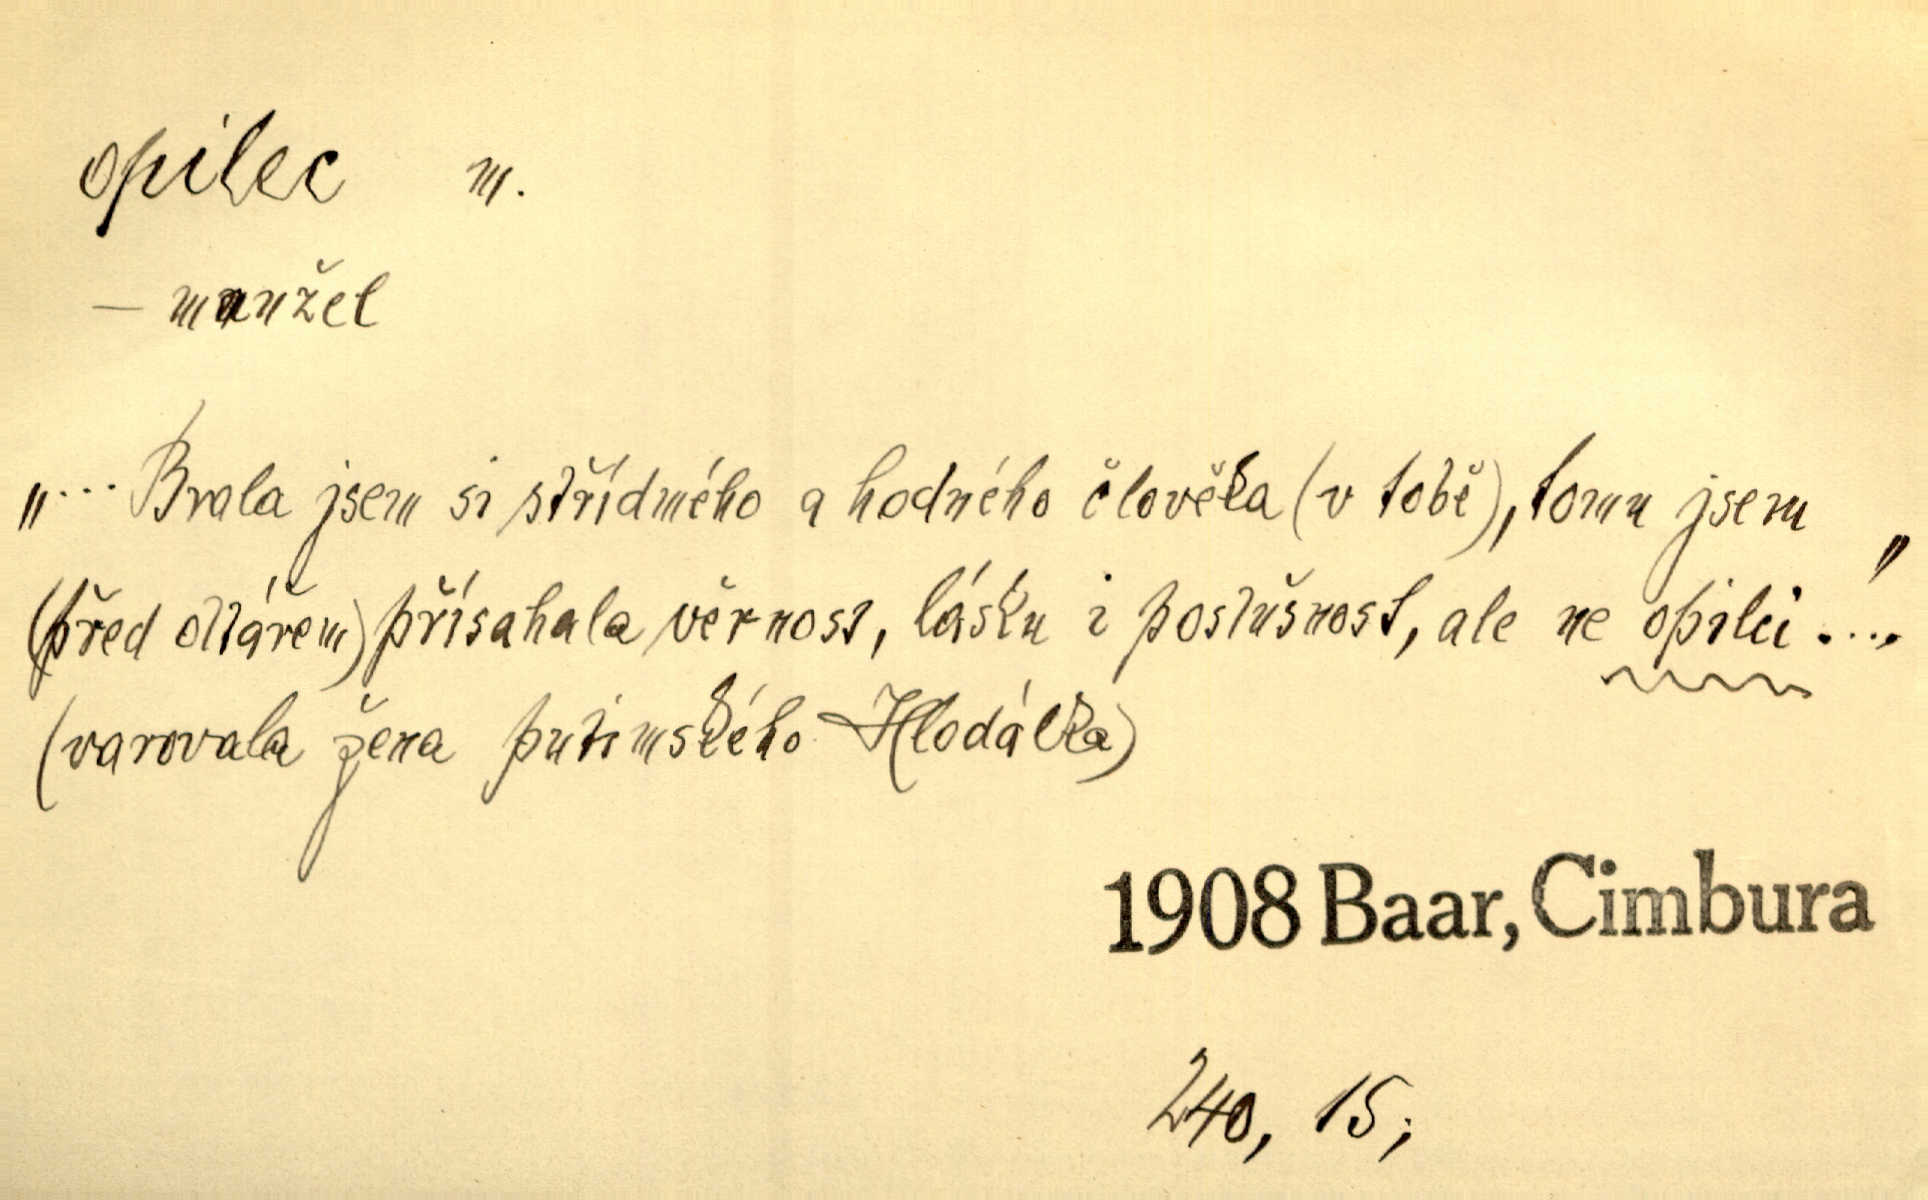 opilec m.
— manžel
„... Brala jsem si střídmého a hodného člověka (v tobě), tomu jsem
(před oltářem) přísahala věrnost, lásku i poslušnost, ale ne opilci ....”
(varovala žena putimského Hlodálka)
1908 Baar, Cimbura
240, 15;